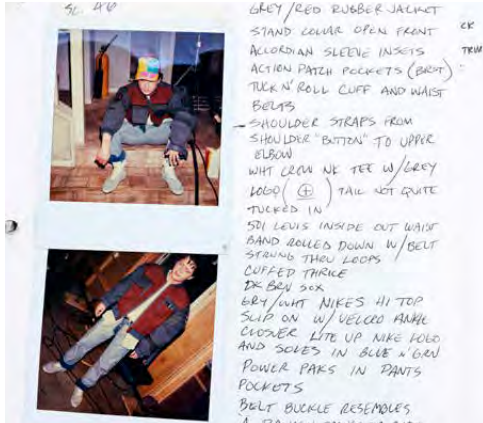 SC. 46
GREY/RED RUBBER JACKET
STAND COLLAR OPEN FRONT
ACCORDIAN SLEEVE INSETS
ACTION PATCH POCKETS (BRST)
TUCK N' ROLL CUFF AND WAIST
BELTS
- SHOULDER STRAPS FROM
SHOULDER "BUTTON" TO UPPER
ELBOW
WHT CREW NK TEE W/GREY
LOGO ( ) TAIL NOT QUITE
TUCKED IN
501 LEVIS INSIDE OUT WAIST
BAND ROLLED DOWN W/BELT
STRUNG THRU LOOPS
CUFFED THRICE
DK BRN SOX
GRY/WHT NIKES HI TOP
SLIP ON W/VELCRO ANKL
CLOSNER LITE UP NIKE LOGO
AND SOLES IN BLUE N' GRN
POWER PAKS IN PANTS
POCKETS
BELT BUCKLE RESEMBLES
CK
TRIM